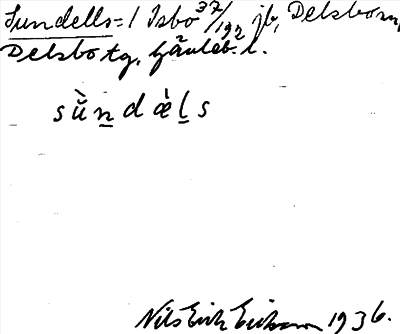 Sundells = 1 Isbo 37/192 jb, Delsbo sn,
Delsbo tg. Gävleb. l.
sŭ̀n̲dæ̀l̲s
Nils Erik Eriksson 1936.